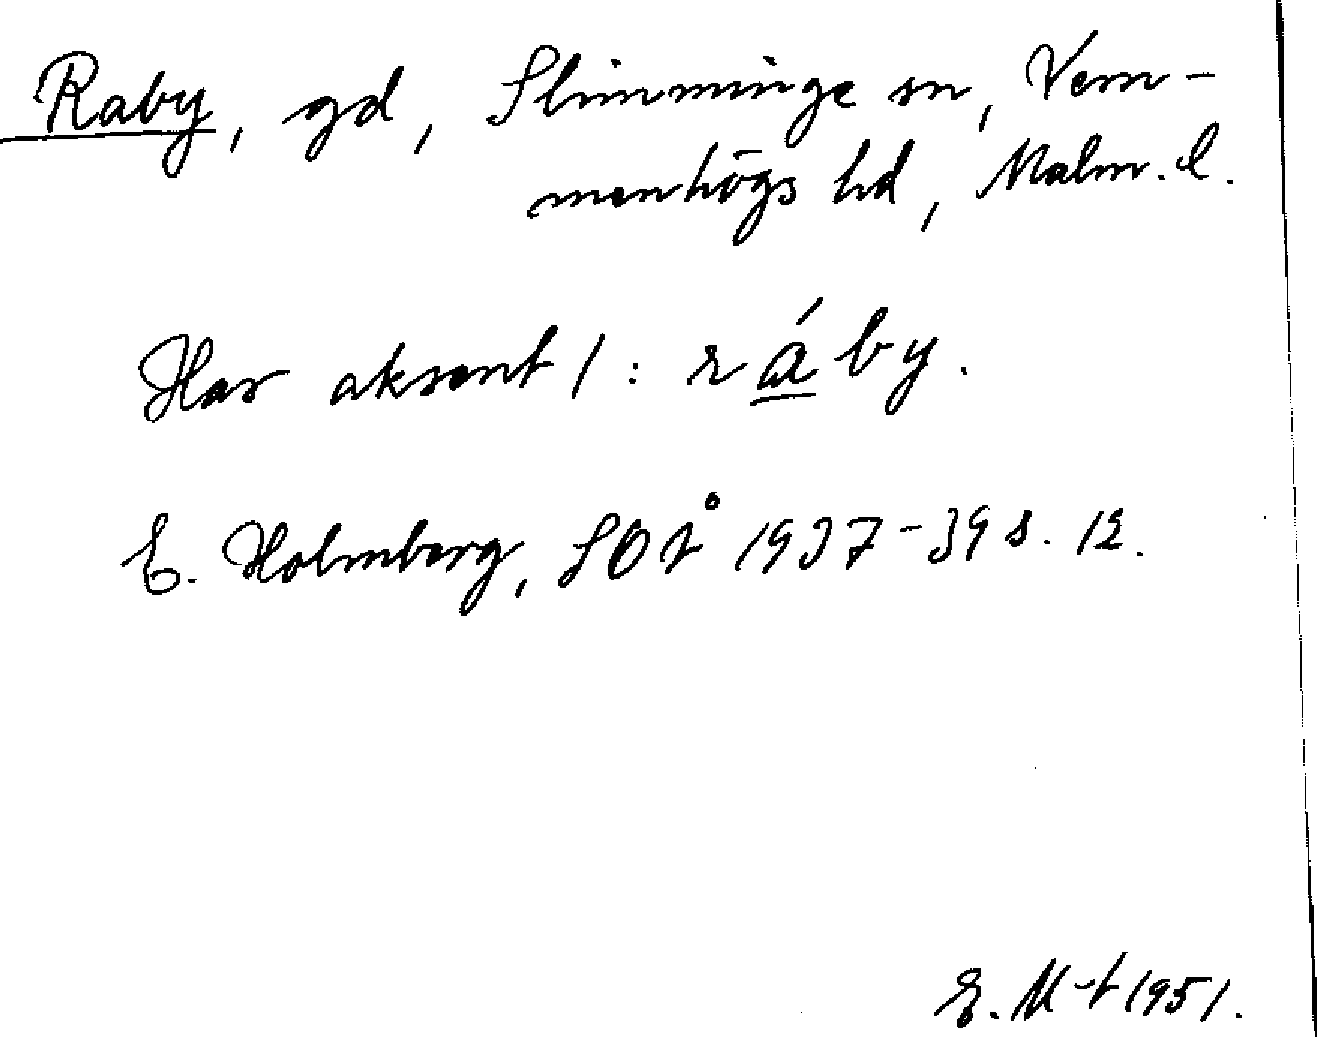 Raby, gd, Slimminge sn, Vem-
menhögs hd, Malm. l.
Har aksent 1: ráby.
E. Holmberg, SOÅ 1937-39 s. 12.
E. M-t 1951.